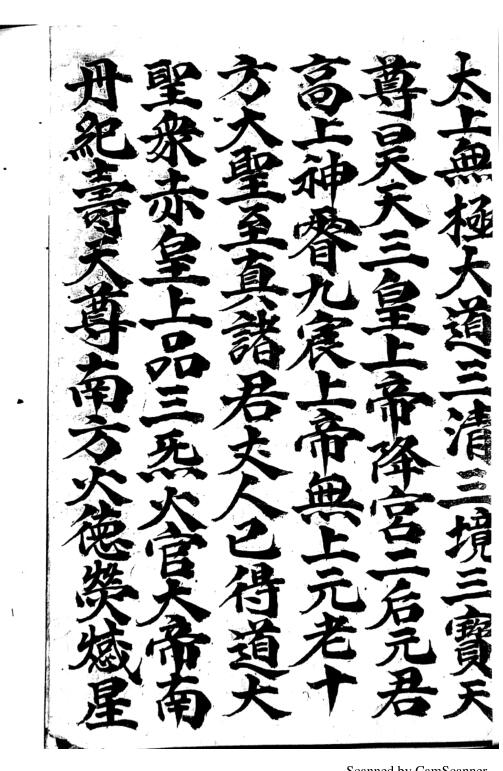 太上無極大道三清三境三寶天
尊昊天三皇上帝降宮二后元君
高上神霄九宸上帝無上元老十
方大聖至真諸君夫人已得道大
聖衆赤皇上品三炁火官大帝南
丹紀壽天尊南方火德熒惑星
Scanned by CamScanner